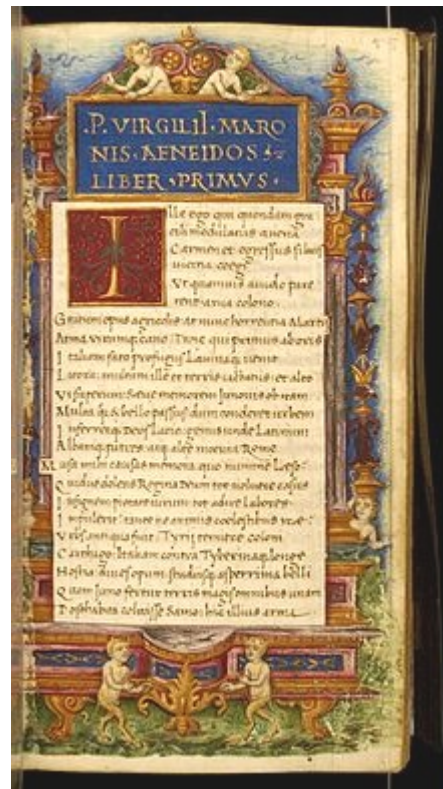 .P. VIRGILII · MARO
NIS · AENEIDOS
LIBER · PRIMVS ·
Ille ego qui quondam gra
modulatus avena
Carmen et egressus silvis
vicina coegi
Vt quamvis avido pare
rent arva colono
Gratum opus agricolis at nunc horrentia Martis
Arma virumq; cano Troie qui primus ab oris
Italiam fato profugus Lavinaq; venit
Litora multum ille et terris iactatus et alto
Vi superum Seve memorem Junonis ob iram
Multa q; & bello passus dum conderet urbem
Inferretq; Deos Latio genus unde Latinum
Albaniq; patres atq; alte moenia Rome
Musa mihi causas memora quo numine Leso
Quidve dolens Regina Deum tot volvere casus
Insignem pietate virum tot adire Labores
Impulerit tante ne animis coelestibus irae
Vrbs antiqua fuit Tyrii tenuere coloni
Carthago Italiam contra Tyberinaq; longe
Hostia dives opum studiisq; asperrima belli
Quam Juno fertur terris magis omnibus unam
Posthabita coluisse Samo hic illius arma